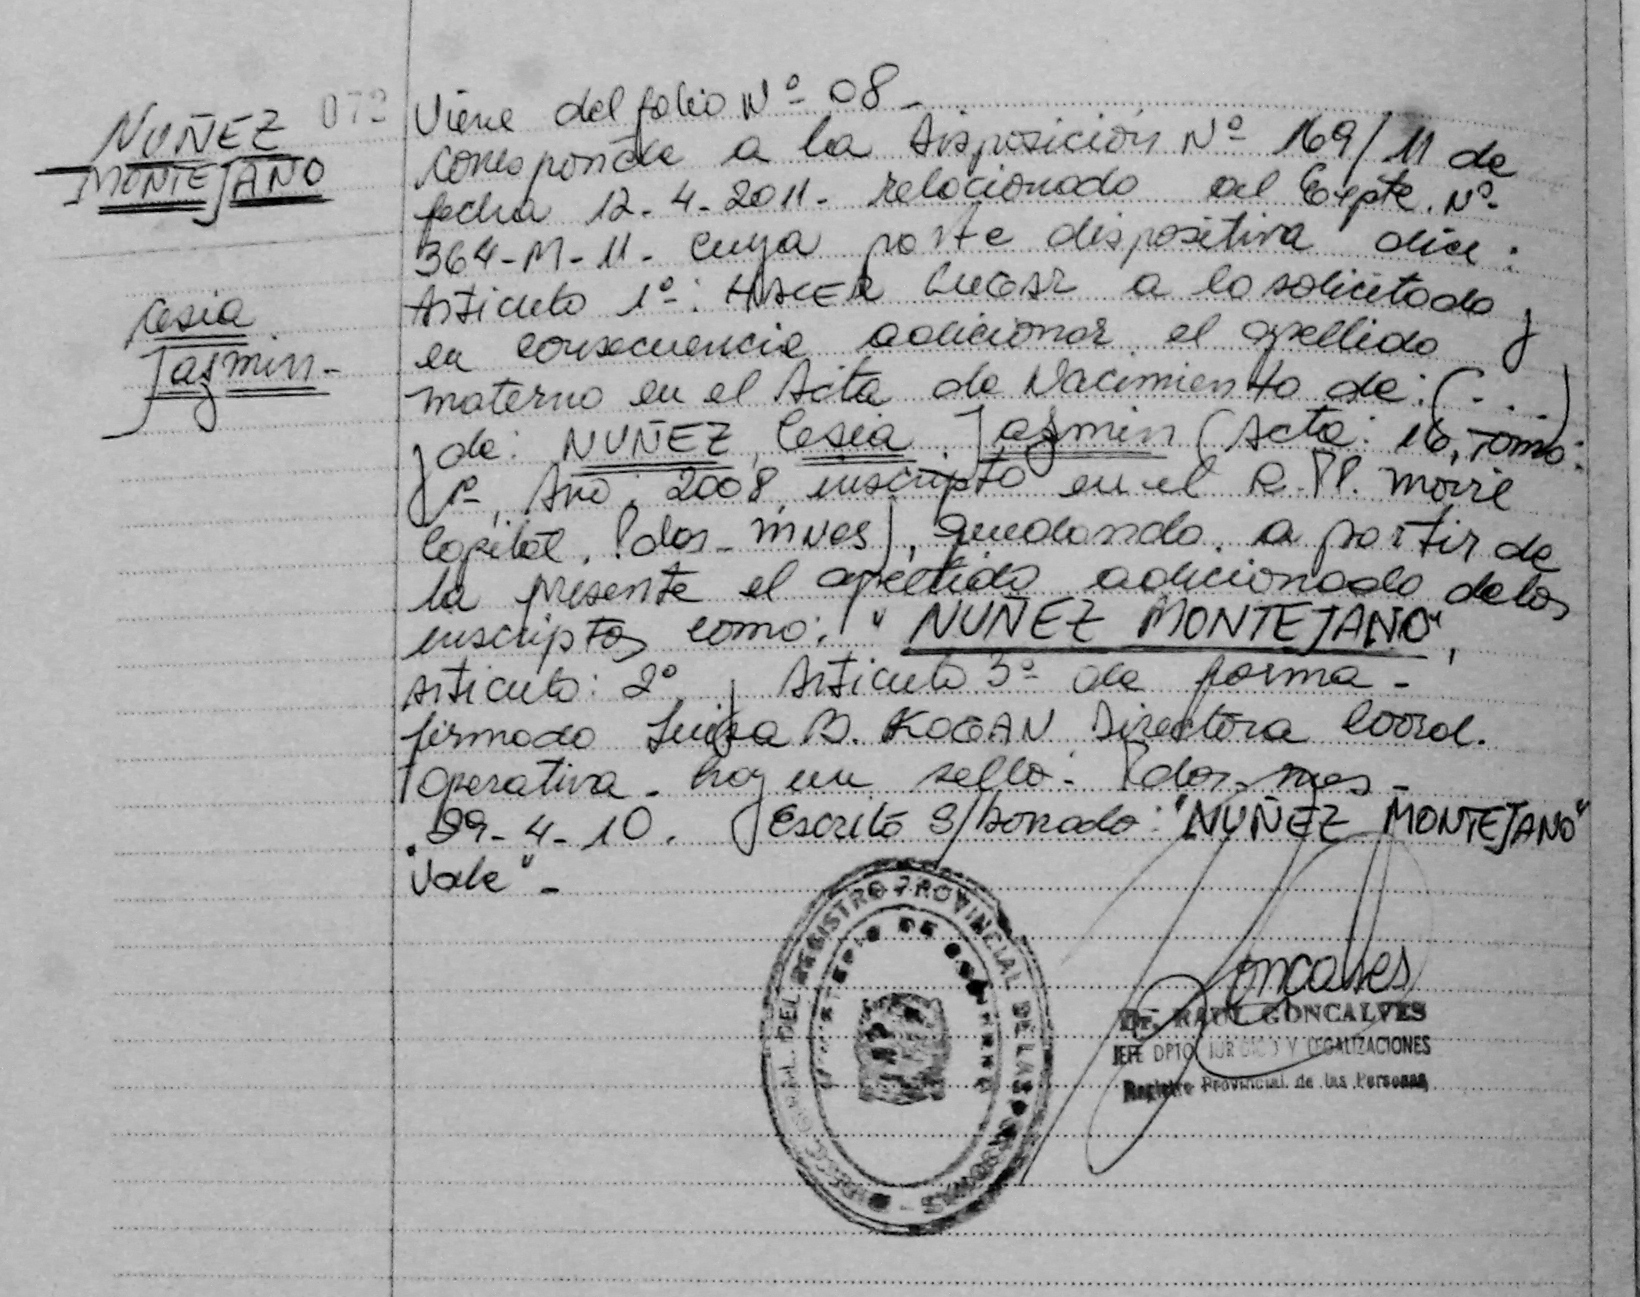 NUÑEZ
MONTEJANO
Cesia
Jazmin-
072
Viene del folio Nº 08-
Corresponde a la Disposición Nº 169/11 de
fecha 12-4-2011- relacionado al Expte. Nº
364-M-11- cuya parte dispositiva dice:
Artículo 1º: HACER LUGAR a lo solicitado y
en consecuencia adicionar el apellido
materno en el Acta de Nacimiento de: (- . . .)
y de: NUÑEZ, Cesia Jazmin (Acta: 16, Tomo:
Año: 2008, inscripto en el R. PP. Movil
Capital, Pdas-Mnes), quedando a partir de
la presente el apellido adicionado de los
inscriptos como: "NUÑEZ MONTEJANO",
Artículo: 2º y Artículo 3º de forma-
firmado Luisa B. KOGAN Directora Coord.
Operativa- hay un sello- Pdas-mnes-
29-4-10. Escrito S/borrado: "NUÑEZ MONTEJANO"
"Vale"-
DEL REGISTRO PROVINCIAL DE LAS PERSONAS
MINISTERIO DE GOBIERNO
Goncalves
Dr. RAUL GONCALVES
JEFE DPTO JURIDICO Y LEGALIZACIONES
Registro Provincial de las Personas